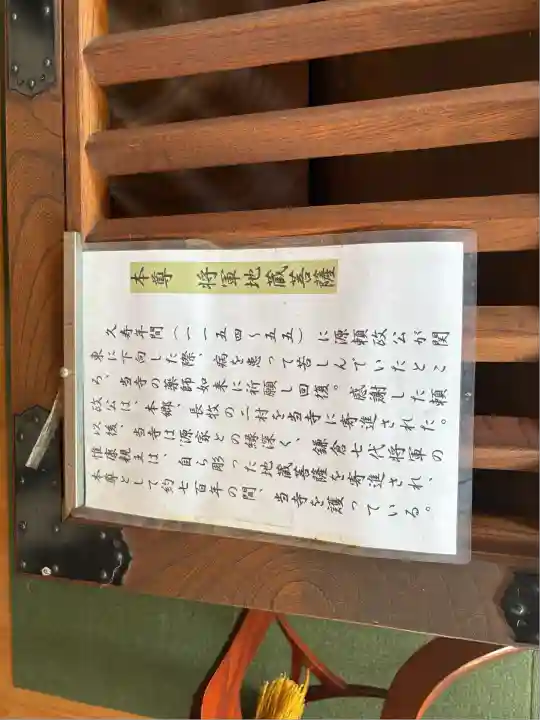 本尊 将軍地蔵菩薩
久寿年間（一一五四～五五）に源頼政公が関
東に下向した際、病を患って苦しんでいたとこ
ろ、当寺の薬師如来に祈願し回復。感謝した頼
政公は、本郷、長牧の二村を当寺に寄進された。
以後、当寺は源家との縁深く、鎌倉七代将軍の
惟康親王は、自ら彫った地蔵菩薩を寄進され、
本尊として約七百年の間、当寺を護っている。